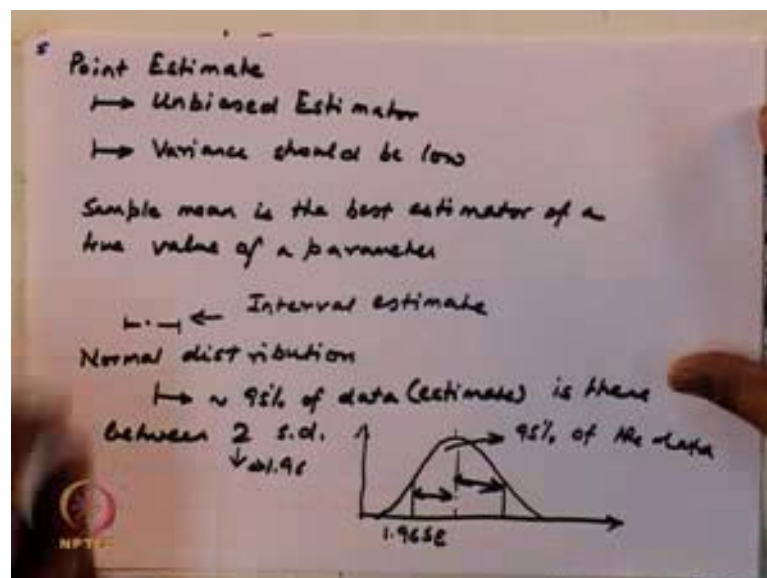 Point Estimate
↦ Unbiased Estimator
↦ Variance should be low
Sample mean is the best estimator of a
true value of a parameter
← Interval estimate
Normal distribution
↦ ~ 95% of data (estimate) is there
between 2 s.d. 95% of the data
↓ 1.96
1.96SE
NPTEL